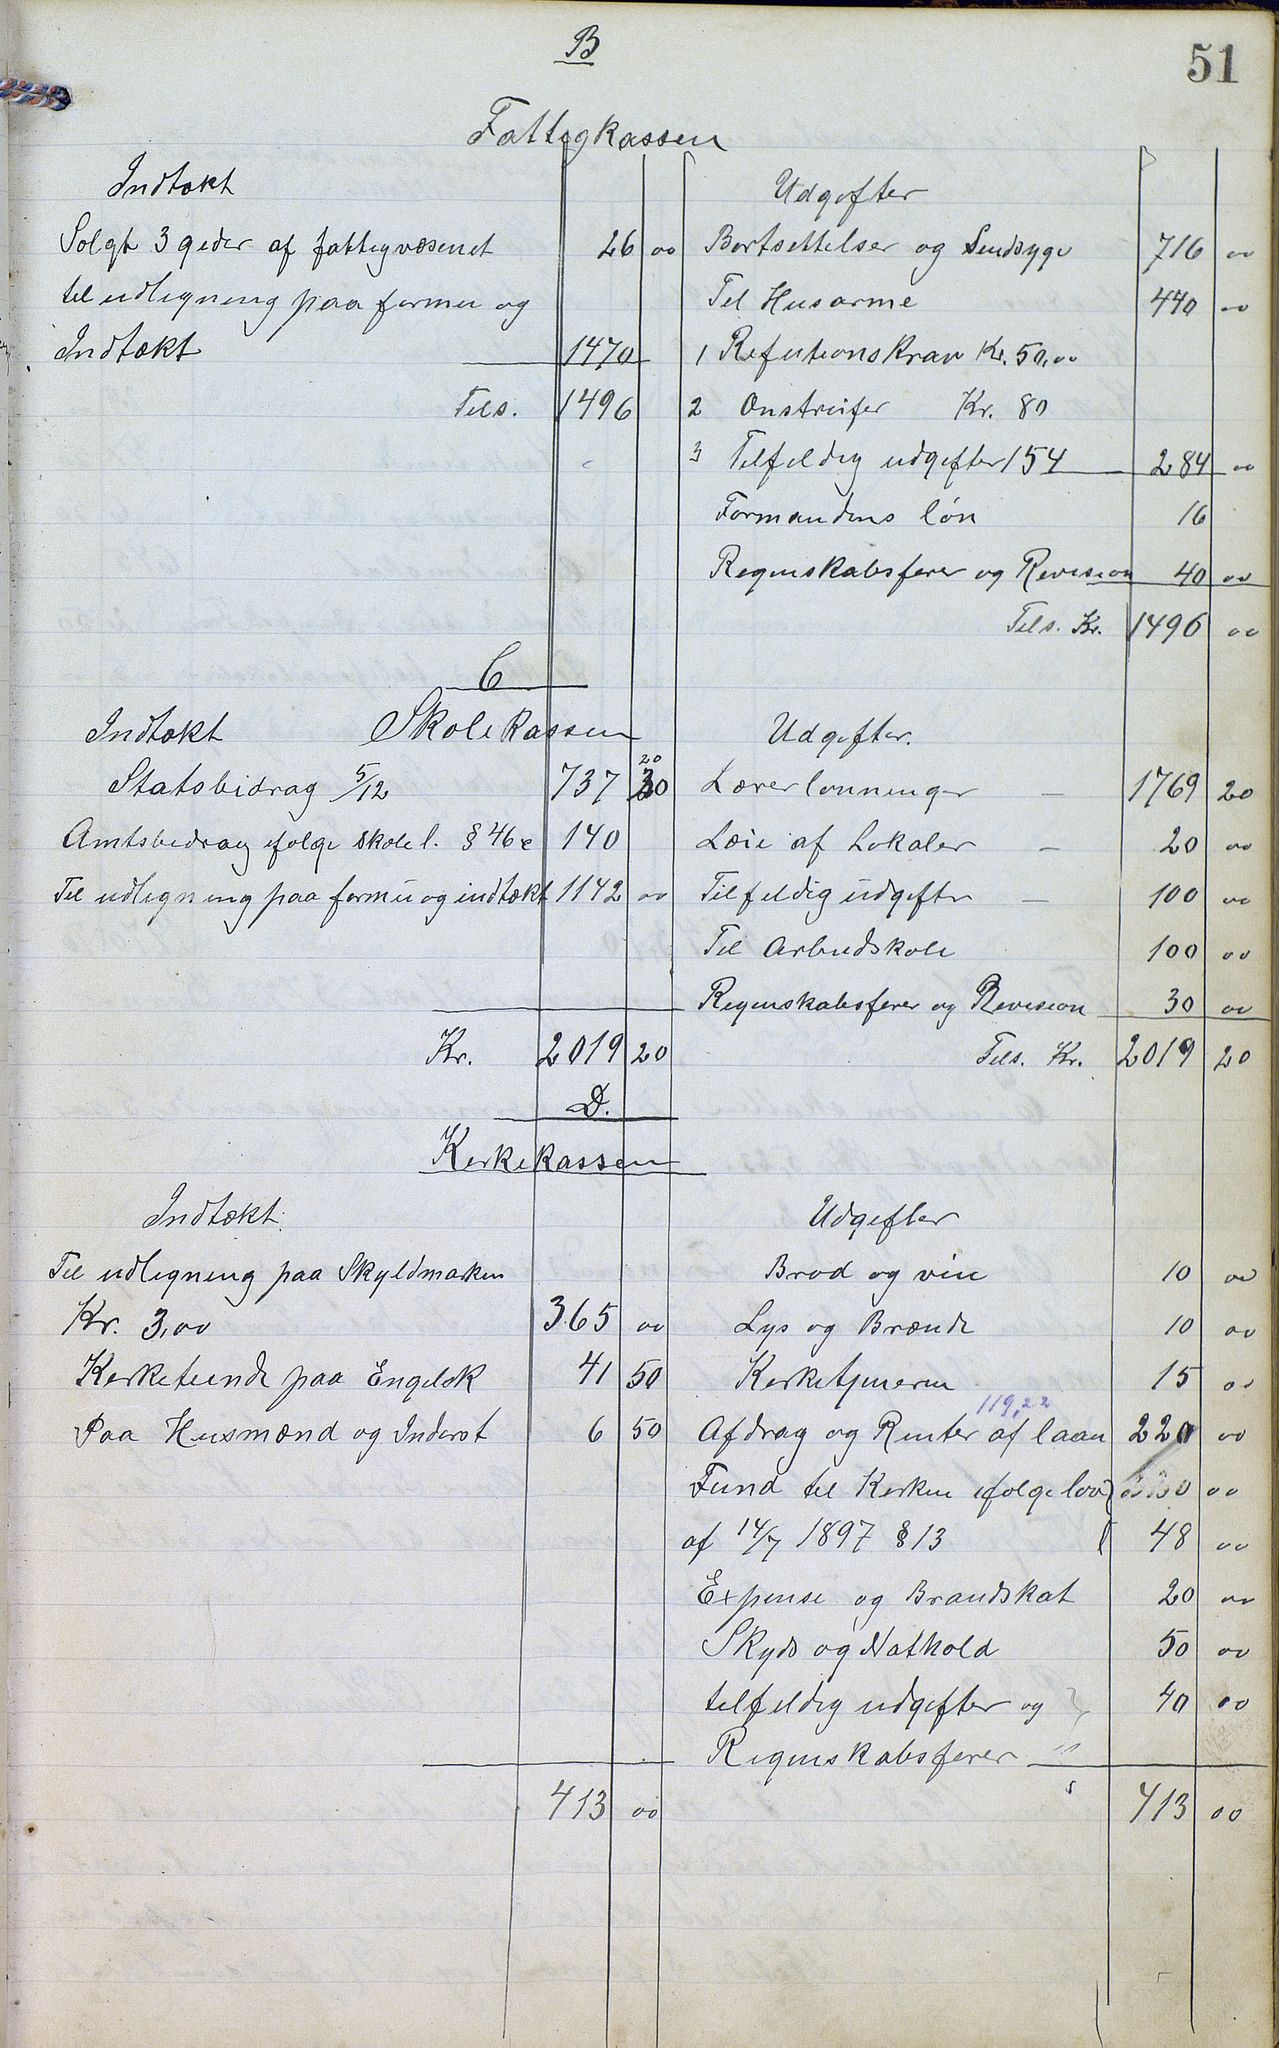 B
51
Fattigkassen
Indtækt
Solgt 3 geder af fattigvæsenet 26 00
til udligning paa formu og
Indtækt 1470
Tils. 1496
Udgifter
Bortsettelser og Sindsyge 716 00
Til Husarme 440 00
1 Refutionskrav Kr. 50,00
2 Kr. 80
3 Tilfeldig udgifter 154 284 00
Formandens løn 16
Regenskabsferer og Revision 40 00
Tils. Kr. 1496 00
C
Skolekassen
Indtækt
Statsbidrag 5/12 737 20
Amtsbidrag ifølge skole l. § 46 e 140
Til udligning paa formu og indtækt 1142 00
Kr. 2019 20
Udgifter.
Lærerlønninger – 1769 20
Leie af Lokaler – 20 00
Tilfeldig udgifter – 100 00
Til Arbeidskole 100 00
Regenskabsferer og Revision 30 00
Tils. Kr. 2019 20
D.
Kerkekassen
Indtækt.
Til udligning paa Skyldmarken
Kr. 3,00 365 00
Kerketiende paa Engelsk 41 50
Paa Husmænd og Inderst 6 50
413 00
Udgifter
Brød og vin 10 00
Lys og Brænde 10 00
Kerketjeneren 15 00
119,22
Afdrag og Renter af laan 220 00
Fund til Kerken ifølge lov
af 14/7 1897 § 13 48 00
Expense og Brandskat 20 00
Skyds og Nathold 50 00
tilfeldig udgifter og 40 00
Regenskabsferer
413 00